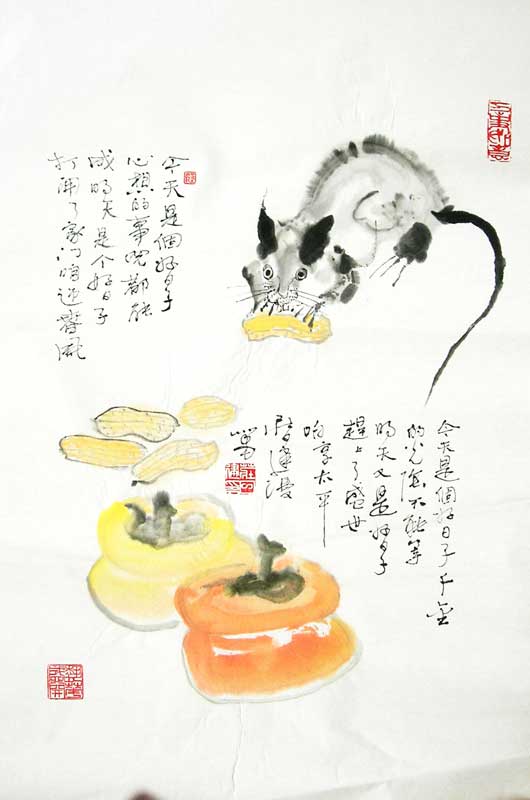 今天是個好日子
心想的事兒都能
成明天是个好日子
打開了家门咱迎春風
今天是個好日子千金
的光陰不能等
明天又是好日子
趕上了盛世
咱享太平